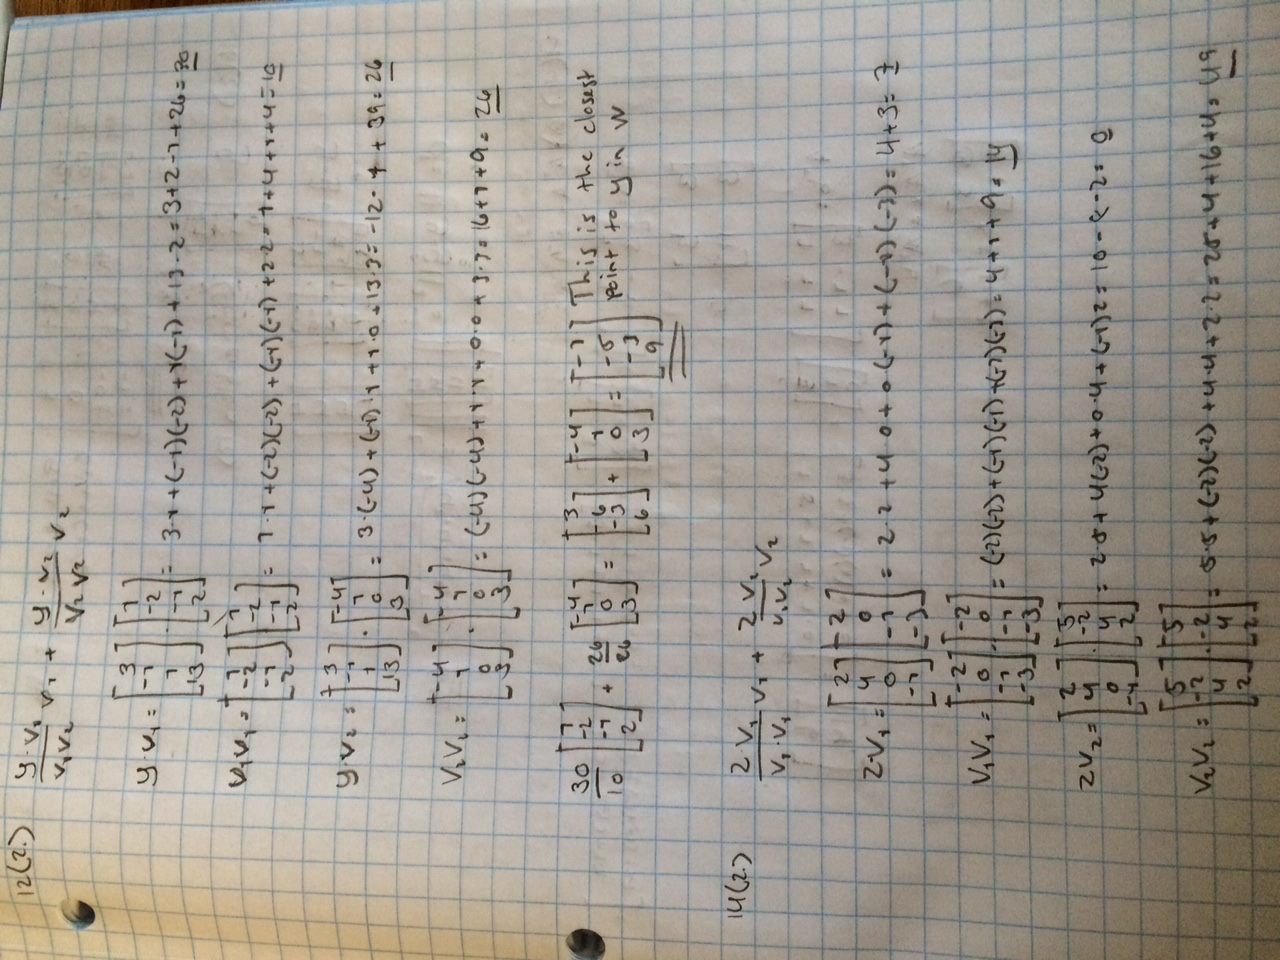 12(2.) y·v₁/v₁v₂ v₁ + y·v₂/v₂v₂ v₂
y·v₁ = [3 -1 1 13] · [1 -2 -1 2] = 3·1+(-1)(-2)+1(-1)+13·2=3+2-1+26=30
v₁v₁ = [1 -2 -1 2] [1 -2 -1 2] = 1·1+(-2)(-2)+(-1)(-1)+2·2=1+4+1+4=10
y·v₂ = [3 -1 1 13] · [-4 1 0 3] = 3·(-4)+(-1)·1+1·0+13·3=-12-1+39=26
V₂V₂ = [-4 1 0 3] · [-4 1 0 3] = (-4)(-4)+1·1+0·0+3·3=16+1+9=26
30/10 [1 -2 -1 2] + 26/26 [-4 1 0 3] = [3 -6 -3 6] + [-4 1 0 3] = [-1 -5 -3 9] This is the closest
point to y in W
14(2.) 2·V₁/V₁·V₁ V₁ + 2 V₂/V₂V₂ V₂
2·V₁ = [2 4 0 -1] [2 0 -1 -3] = 2·2+4·0+0(-1)+(-1)(-3)=4+3=7
V₁V₁ = [-2 0 -1 -3] · [-2 0 -1 -3] = (-2)(-2)+(-1)(-1)+(-3)(-3)=4+1+9=14
2V₂ = [2 4 0 -1] · [5 -2 4 2] = 2·5+4(-2)+0·4+(-1)2=10-8-2=0
V₂V₂ = [5 -2 4 2] · [5 -2 4 2] = 5·5+(-2)(-2)+4·4+2·2=25+4+16+4=49